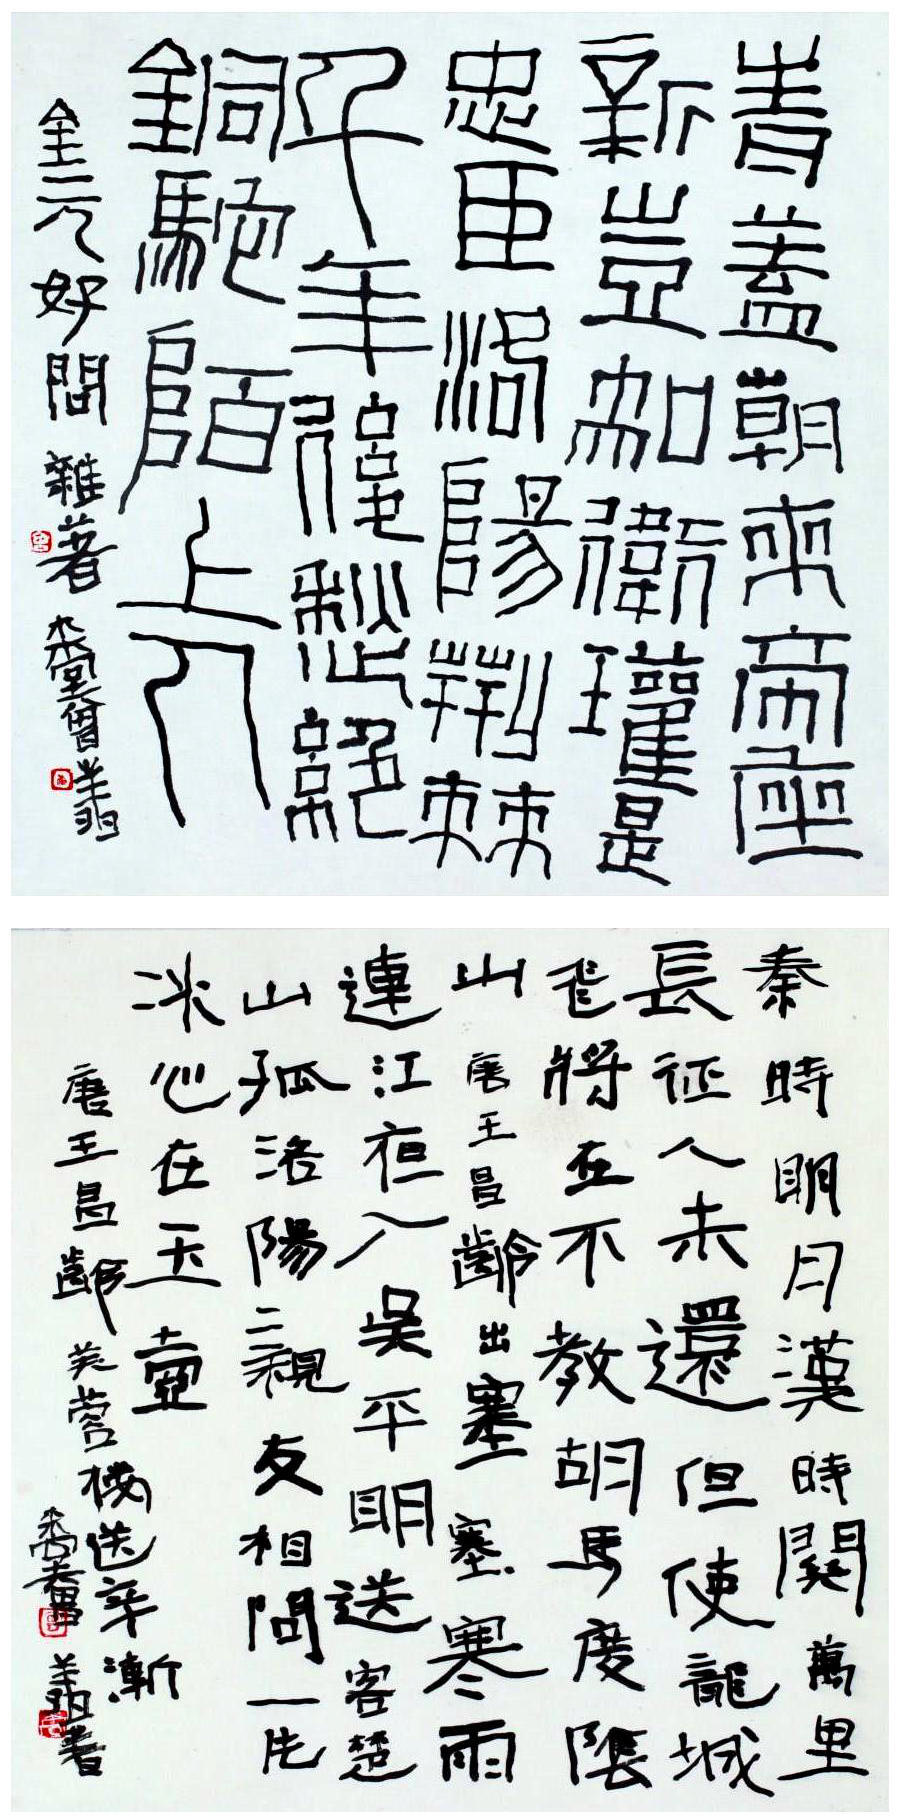 青蓋朝來帝座
新豈知衛瓘是
忠臣洛陽荊棘
千年後愁絕
銅駝陌上人
金元好問雜著
秦時明月漢時關萬里
長征人未還但使龍城
飛將在不教胡馬度陰
山唐王昌齡出塞塞寒雨
連江夜入吳平明送客楚
山孤洛陽二親友相問一片
冰心在玉壺
唐王昌齡芙蓉樓送辛漸